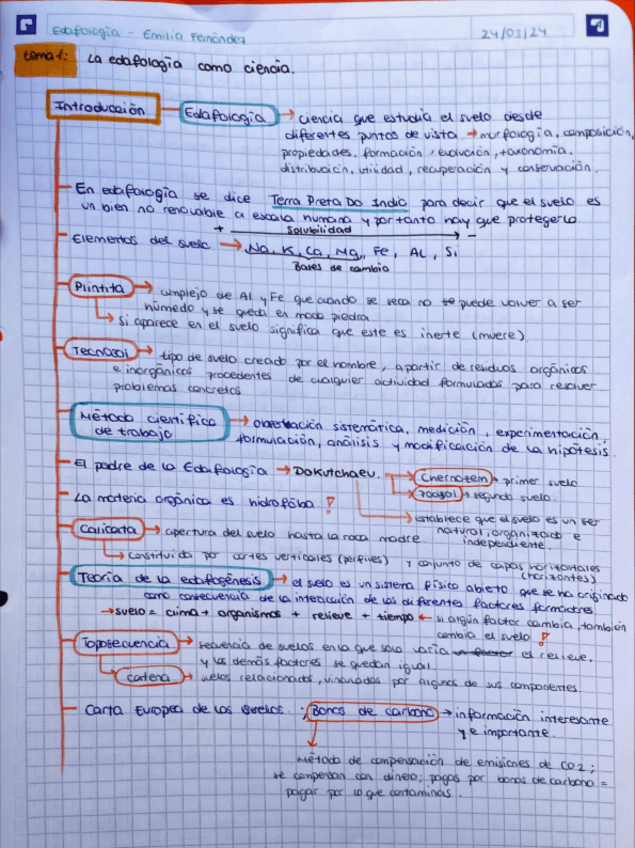 Edafología - Emilia Fernández
24/03/24
tema 1: La edafología como ciencia.
Introducción
Edafología → ciencia que estudia el suelo desde
diferentes puntos de vista → morfología, composición,
propiedades, formación, evolución, taxonomía,
distribución, utilidad, recuperación y conservación.
En edafología se dice Terra Preta Do Indio para decir que el suelo es
un bien no renovable a escala humana y por tanto hay que protegerlo
+ Solubilidad -
Elementos del suelo → Na, K, Ca, Mg, Fe, Al, Si
Bases de cambio
Plintita → complejo de Al y Fe que cuando se seca no se puede volver a ser
húmedo y se queda en modo piedra.
↳ si aparece en el suelo significa que este es inerte (muere).
Tecnosol → tipo de suelo creado por el hombre, a partir de residuos orgánicos
e inorgánicos procedentes de cualquier actividad formulados para resolver
problemas concretos
Método científico → observación sistemática, medición, experimentación,
de trabajo formulación, análisis y modificación de la hipótesis.
El padre de la Edafología → Dokutchaev. → Chernozem → primer suelo
→ Podsol → segundo suelo
La materia orgánica es hidrófoba !
→ establece que el suelo es un ser
natural, organizado e
independiente.
Calicata → apertura del suelo hasta la roca madre.
↳ constituida por cortes verticales (perfiles) y conjunto de capas horizontales
(horizontes)
Teoría de la edafogénesis → el suelo es un sistema físico abierto que se ha originado
como consecuencia de la interacción de los diferentes factores formadores
→ suelo = clima + organismos + relieve + tiempo ← si algún factor cambia, también
cambia el suelo !
Toposecuencia → secuencia de suelos en la que solo varía un factor el relieve.
y los demás factores se quedan igual
↳ catena → suelos relacionados, vinculados por algunos de sus componentes
Carta Europea de los suelos. ; Bonos de carbono → información interesante
y e importante.
Método de compensación de emisiones de CO2;
se compensan con dinero; pagas por bonos de carbono =
pagar por lo que contaminas.